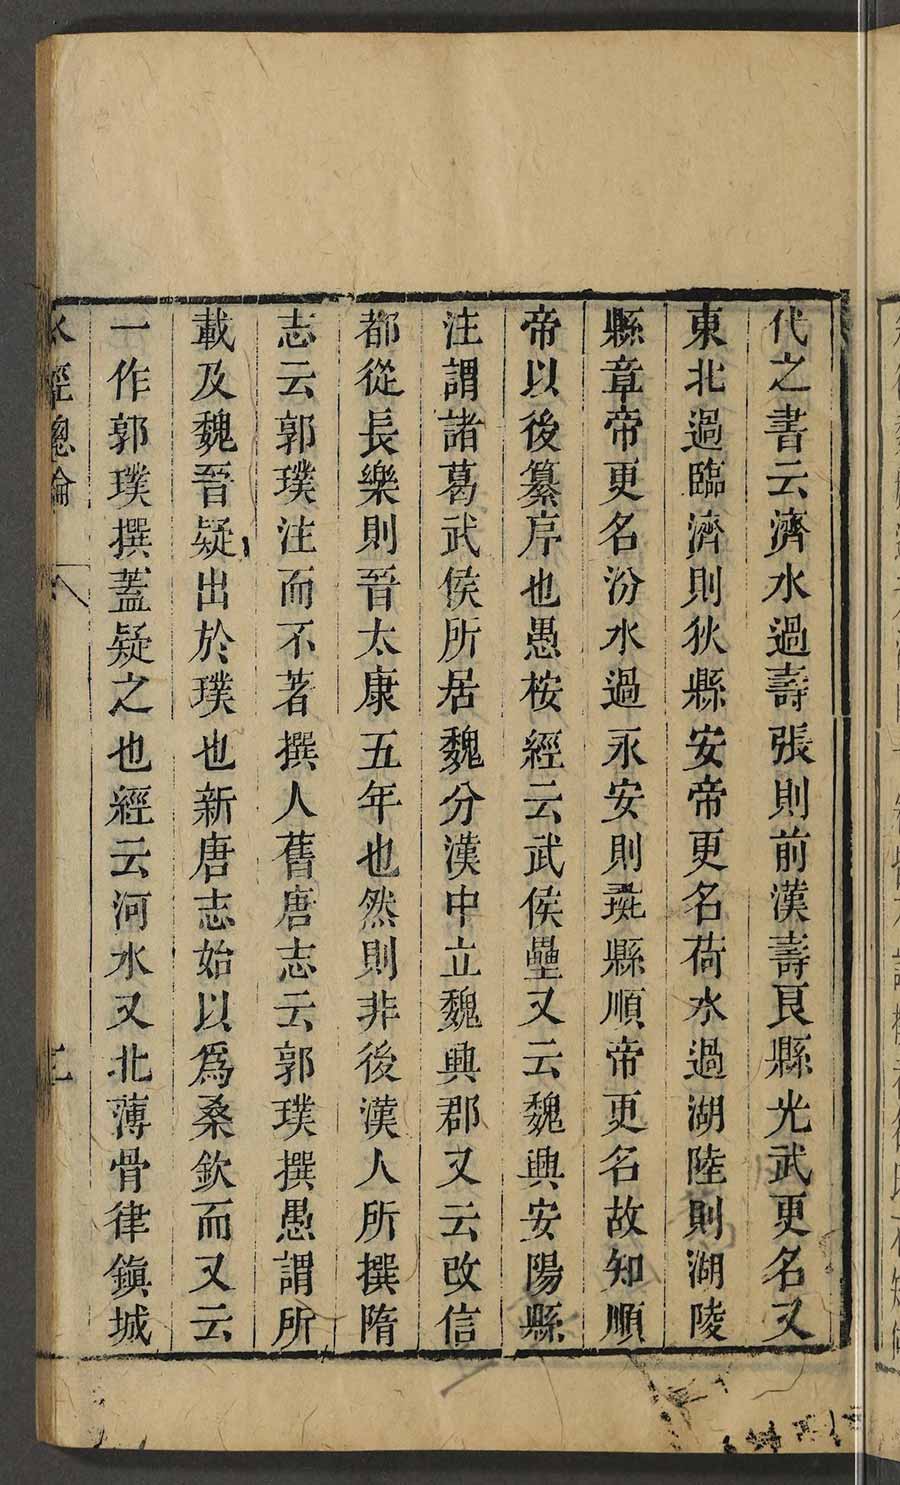 代之書云濟水過壽張則前漢壽良縣光武更名又
東北過臨濟則狄縣安帝更名荷水過湖陸則湖陵
縣章帝更名汾水過永安則彘縣順帝更名故知順
帝以後纂序也愚桉經云武侯壘又云魏興安陽縣
注謂諸葛武侯所居魏分漢中立魏興郡又云改信
都從長樂則晉太康五年也然則非後漢人所撰隋
志云郭璞注而不著撰人舊唐志云郭璞撰愚謂所
載及魏晉疑出於璞也新唐志始以爲桑欽而又云
一作郭璞撰蓋疑之也經云河水又北薄骨律鎭城
水經總論